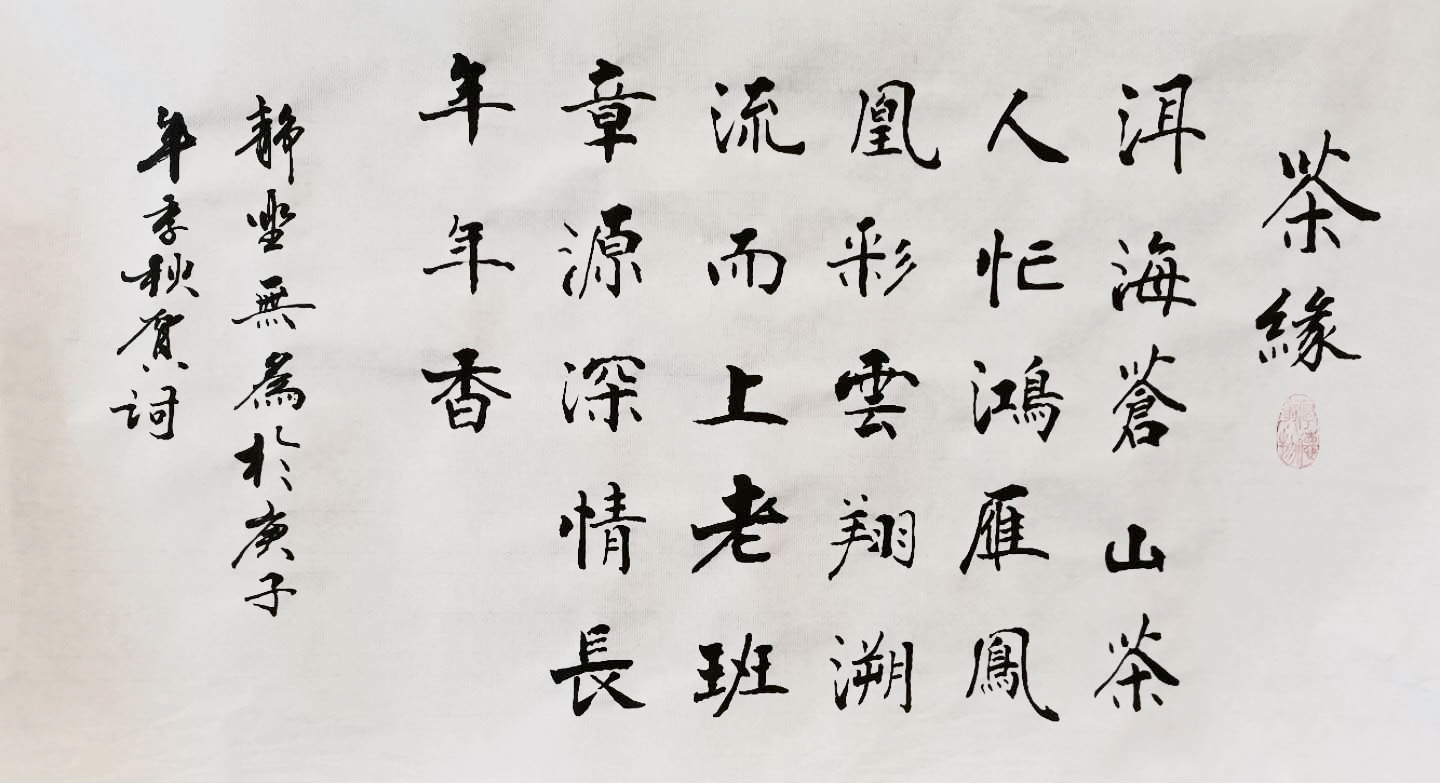 茶緣
洱海蒼山茶
人忙鴻雁鳳
凰彩雲翔溯
流而上老班
章源深情長
年年香
靜坐無為於庚子
年季秋賀詞